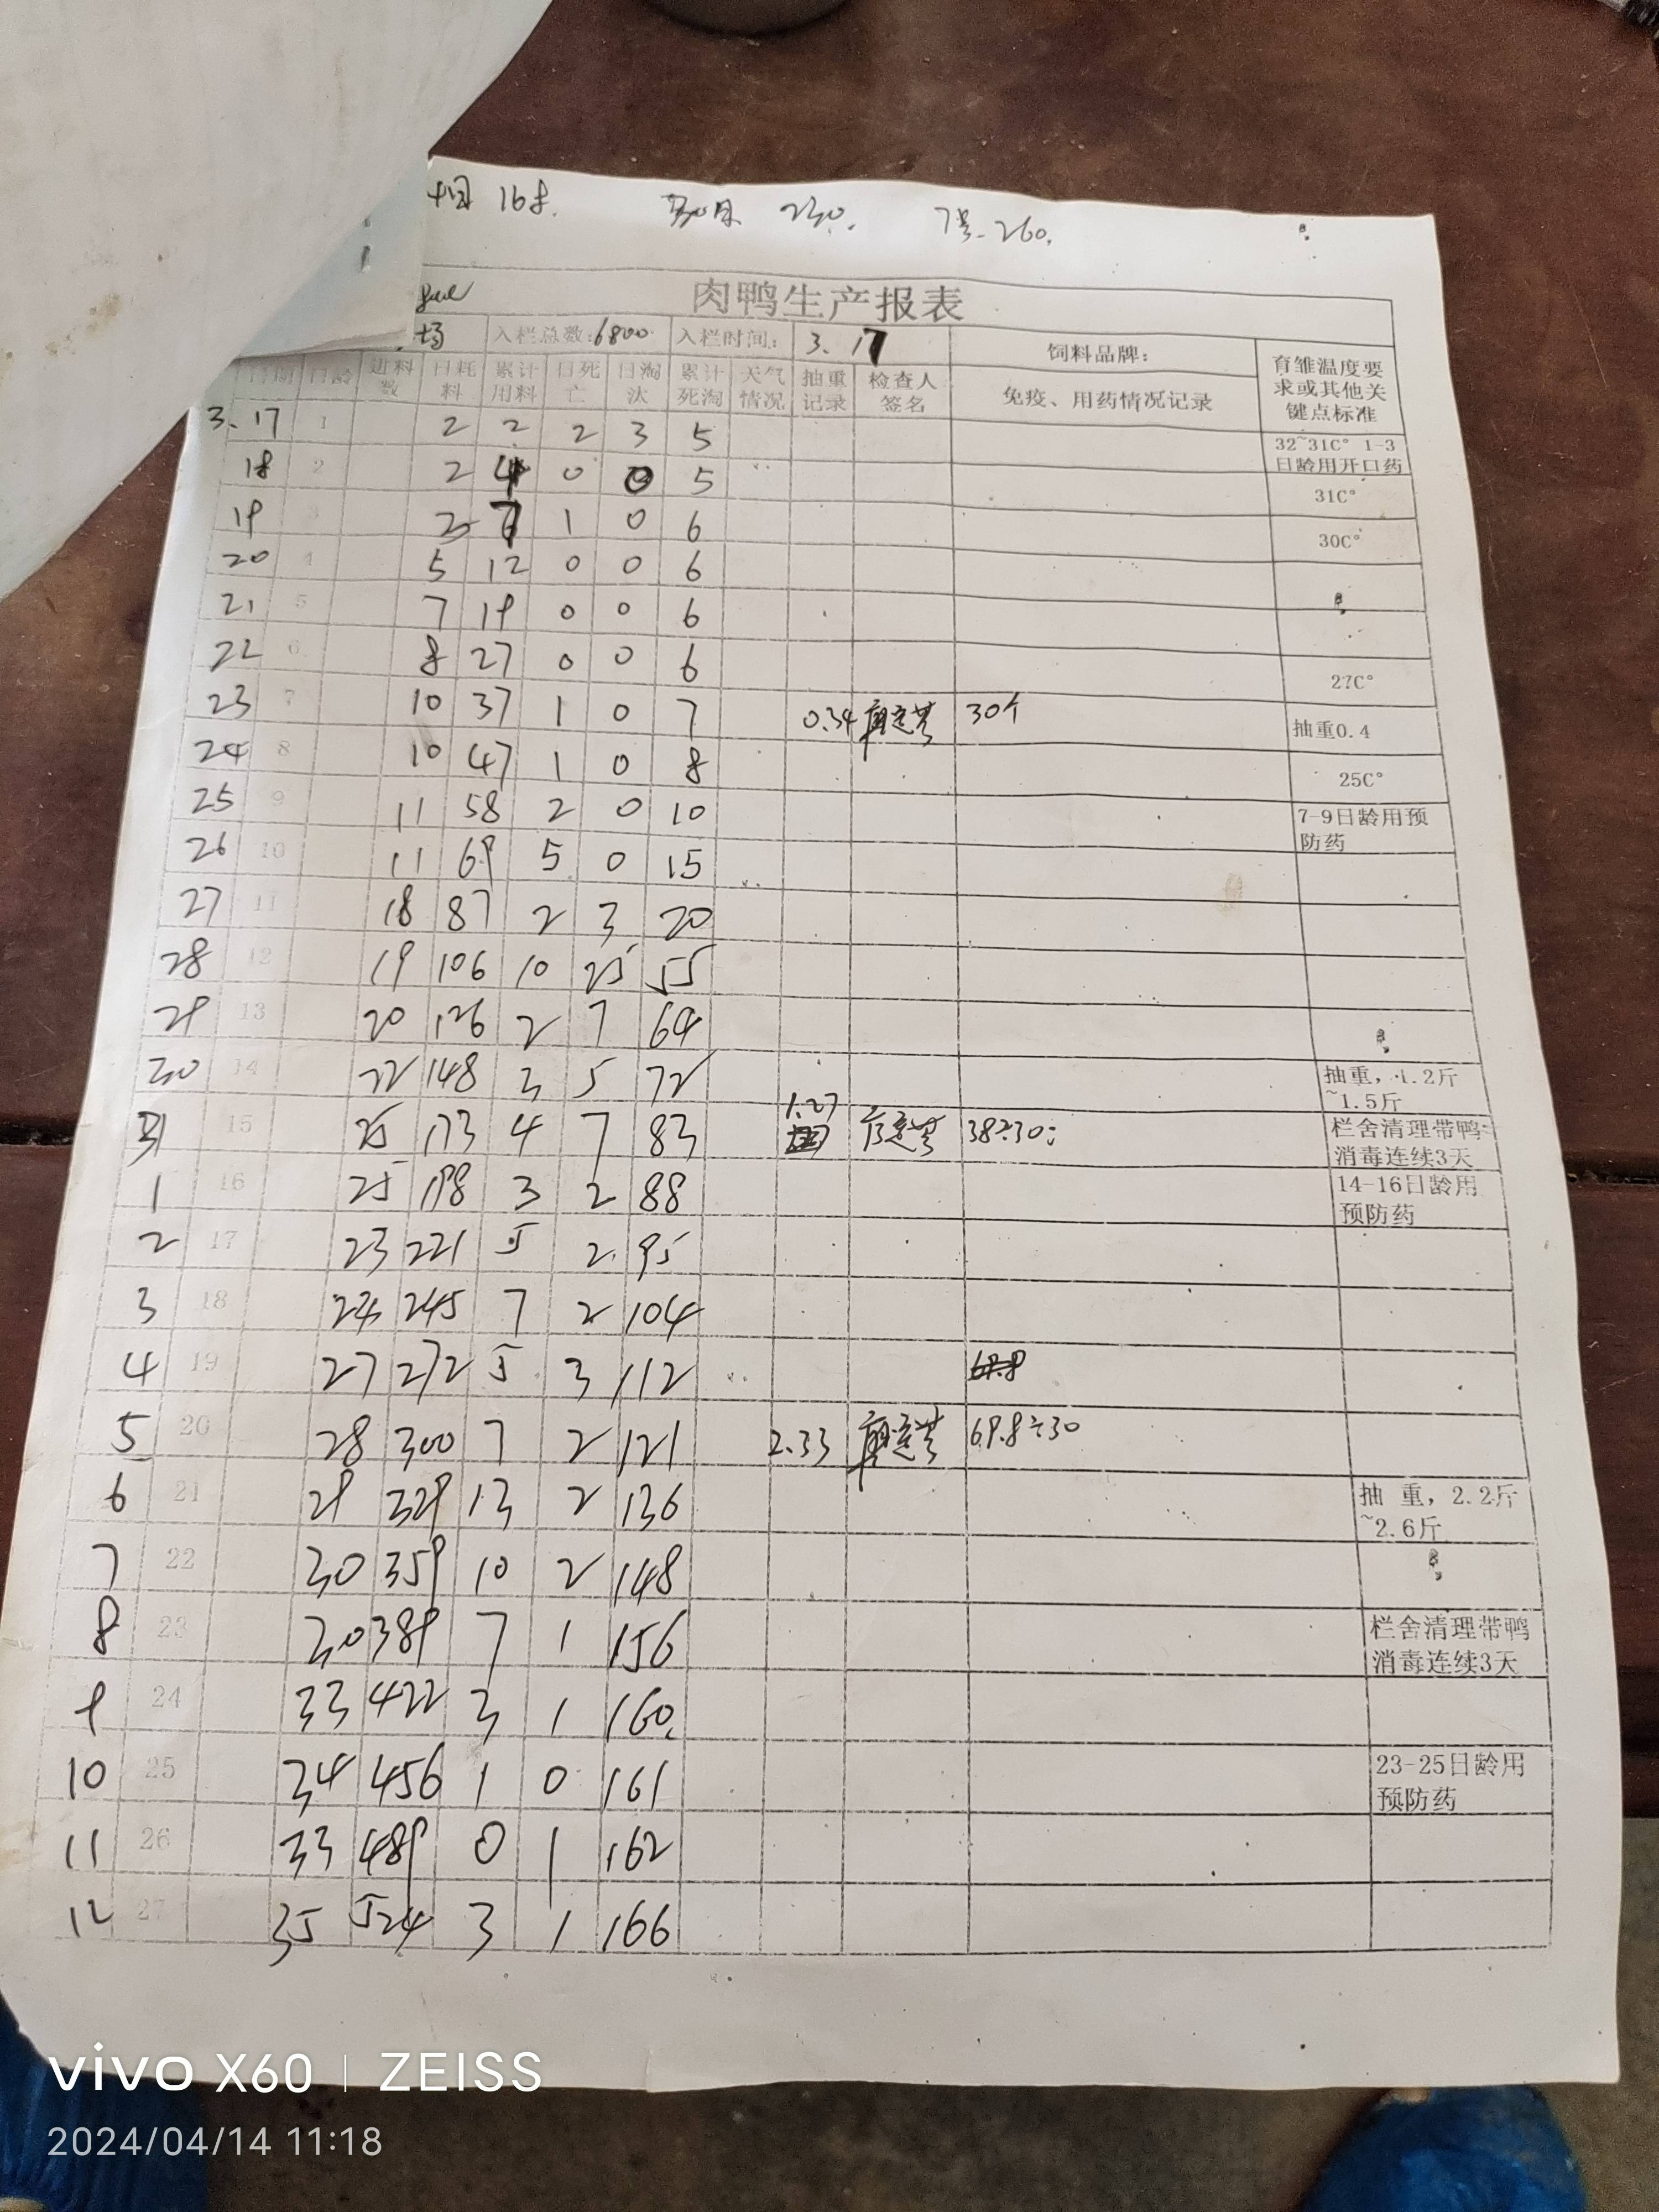 16
230.
7号-260.
肉鸭生产报表
场 入栏总数:6800 入栏时间: 3.17 饲料品牌: 育雏温度要求或其他关键点标准
日期 日龄 进料数 日耗料 累计用料 日死亡 日淘汰 累计死淘 天气情况 抽重记录 检查人签名 免疫、用药情况记录
3.17 1 2 2 2 3 5 32~31C° 1-3日龄用开口药
18 2 2 4 0 0 5 31C°
19 3 7 1 0 6 30C°
20 4 5 12 0 0 6
21 5 7 19 0 0 6
22 6 8 27 0 0 6 27C°
23 7 10 37 1 0 7 0.34 30个 抽重0.4
24 8 10 47 1 0 8 25C°
25 9 11 58 2 0 10 7-9日龄用预防药
26 10 11 69 5 0 15
27 11 18 87 2 3 20
28 12 19 106 10 25 55
29 13 20 126 2 7 64
30 14 22 148 3 5 72 抽重,1.2斤~1.5斤
31 15 25 173 4 7 83 1.27 38÷30: 栏舍清理带鸭消毒连续3天
1 16 25 198 3 2 88 14-16日龄用预防药
2 17 23 221 5 2 95
3 18 24 245 7 2 104
4 19 27 272 5 3 112
5 20 28 300 7 2 121 2.33 69.8÷30
6 21 29 329 13 2 136 抽 重,2.2斤~2.6斤
7 22 30 359 10 2 148
8 23 30 389 7 1 156 栏舍清理带鸭消毒连续3天
9 24 33 422 3 1 160
10 25 34 456 1 0 161 23-25日龄用预防药
11 26 33 489 0 1 162
12 27 35 524 3 1 166
vivo X60 | ZEISS
2024/04/14 11:18